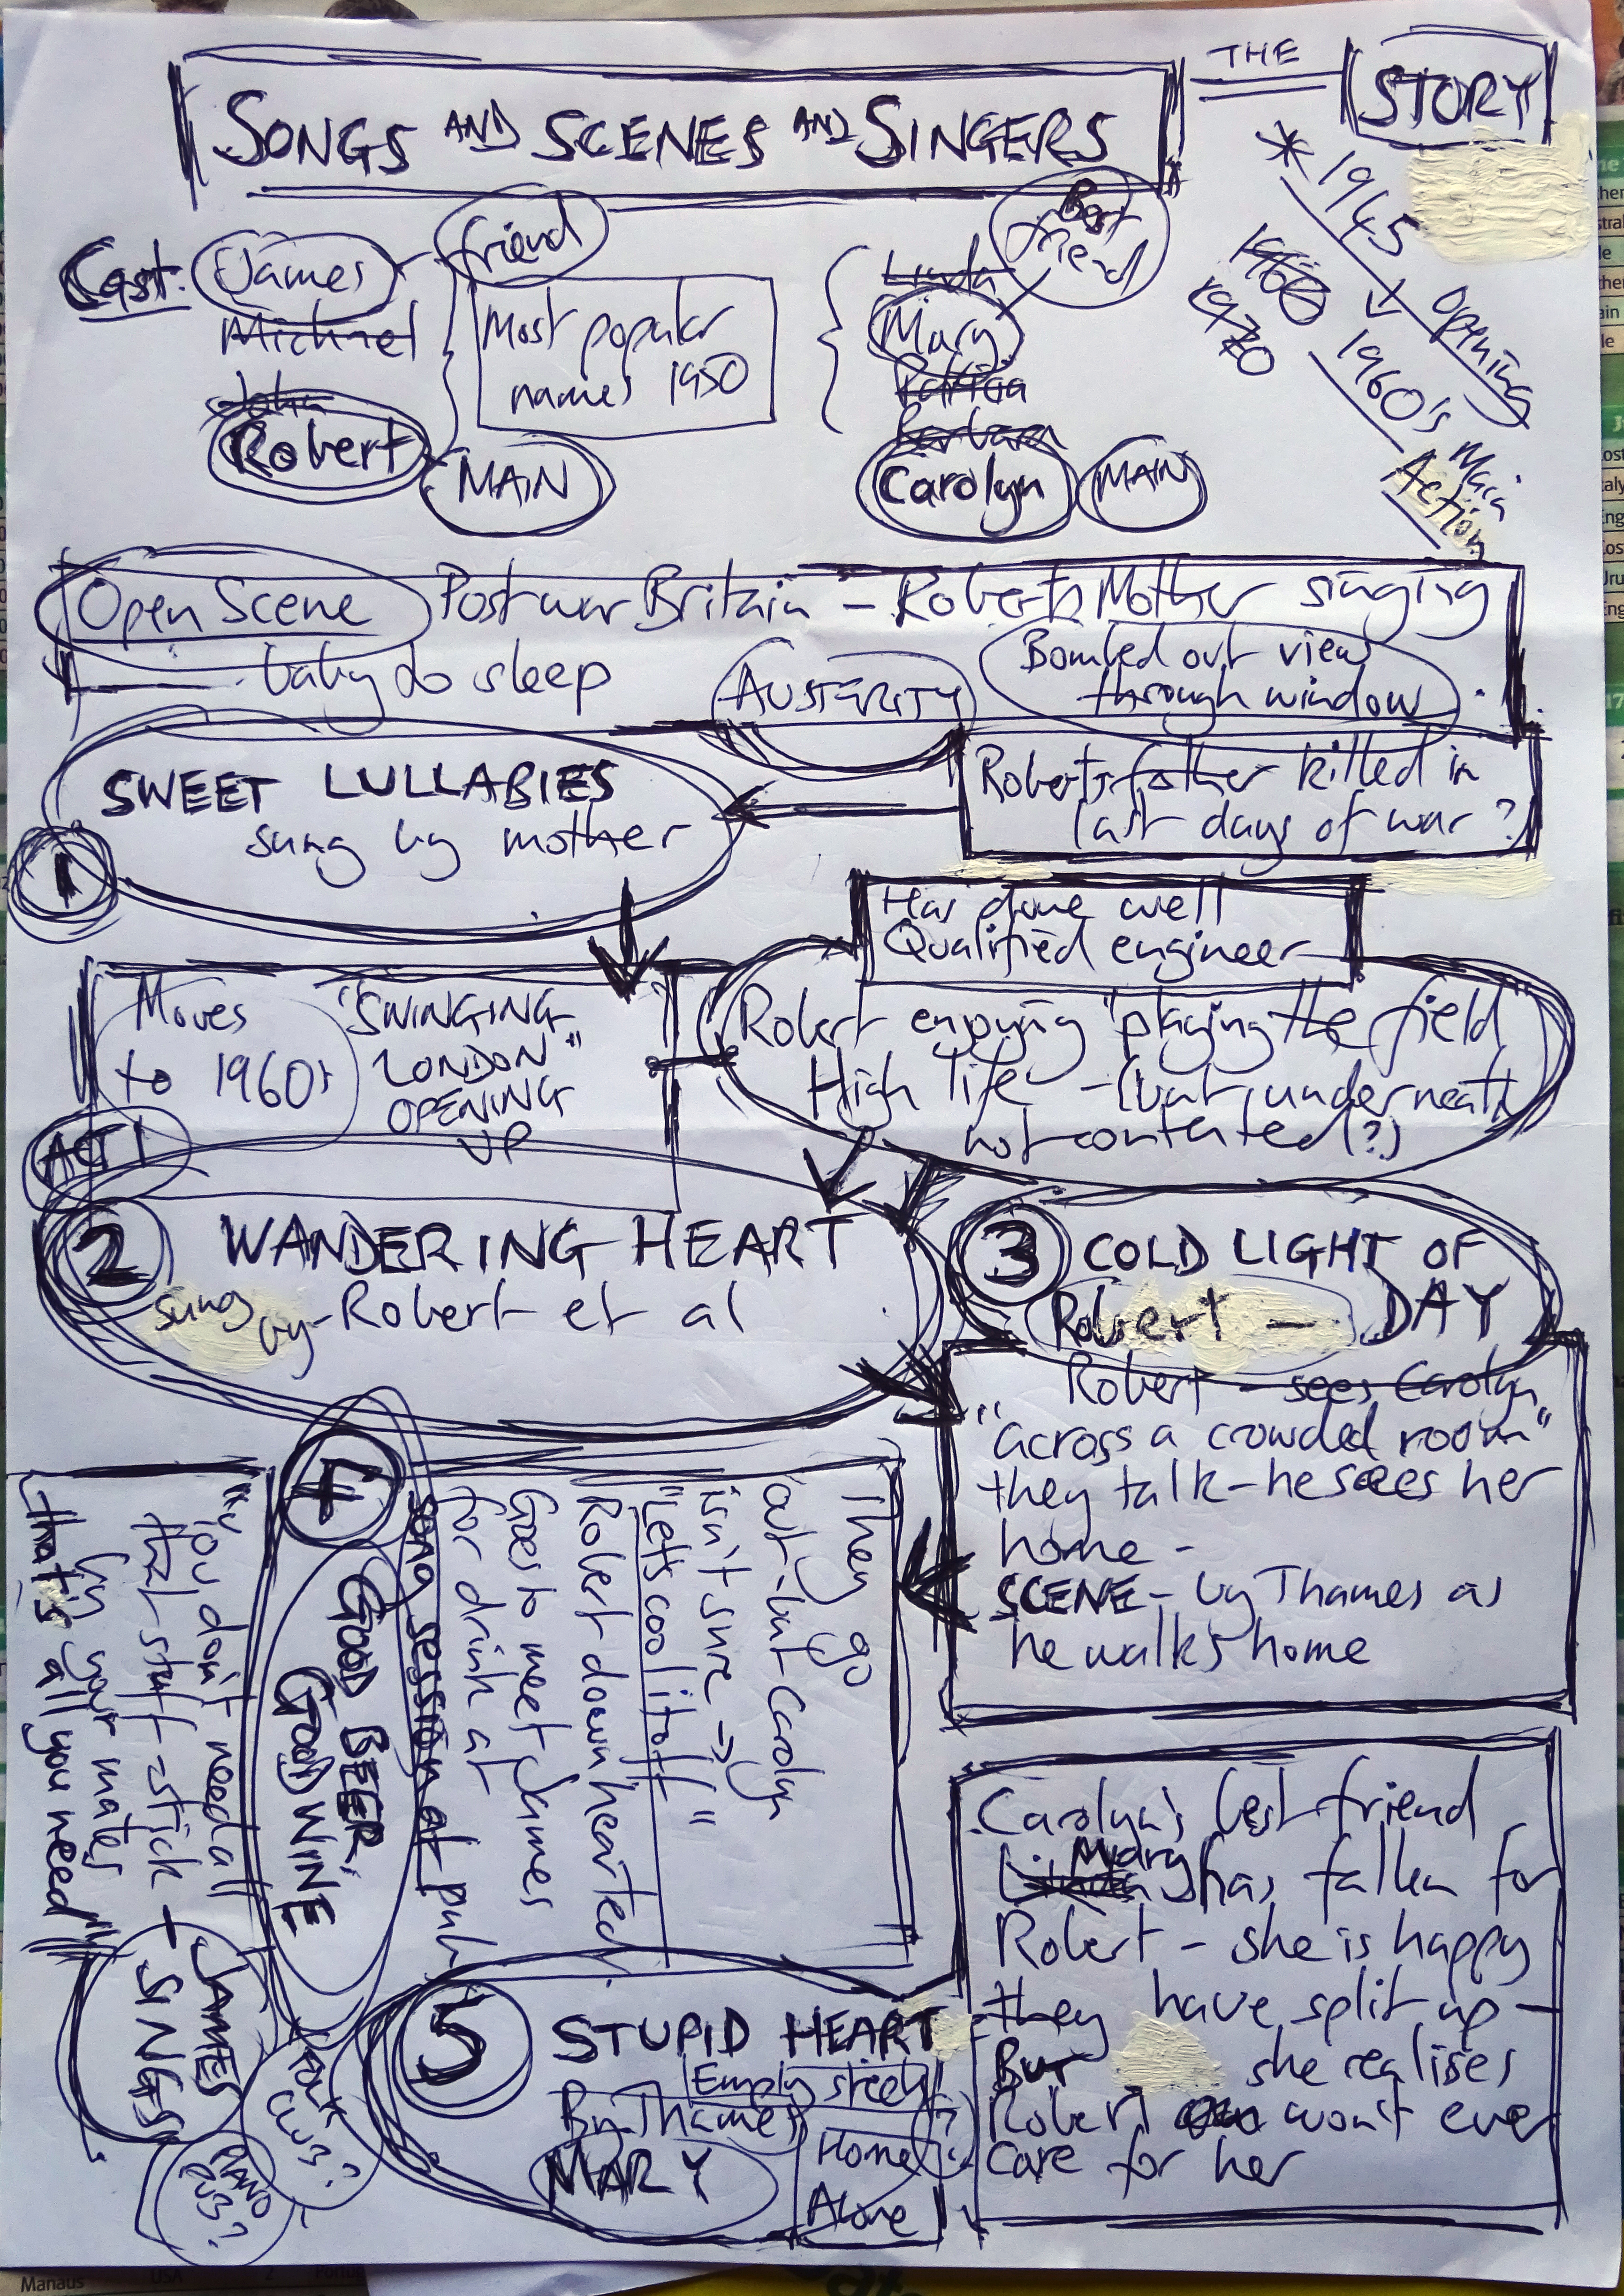 SONGS AND SCENES AND SINGERS
THE STORY
* 1945 Opening
1960
1970
1960's Main Action
Cast:
James friend
Michael
John
Robert MAIN
Most popular
names 1950
Linda
Mary Best friend
Patricia
Barbara
Carolyn MAIN
Open Scene Post war Britain - Robert's Mother singing
baby to sleep AUSTERITY
Bombed out view
through window
SWEET LULLABIES
sung by mother
1
Robert's father killed in
last days of war?
Has done well
Qualified engineer
Moves
to 1960s
"SWINGING
LONDON"
OPENING
UP
Robert enjoying "playing the field"
High life - (but, underneath
not contented(?)
ACT 1
2 WANDERING HEART
sung by - Robert et al
3 COLD LIGHT OF
DAY
Robert -
Robert - sees Carolyn
"across a crowded room"
they talk - he sees her
home -
SCENE - by Thames as
he walks home
They go
out - but Carolyn
isn't sure →
"Let's cool it off"
Robert down hearted
Goes to meet James
for drink at
song session at pub
4
GOOD BEER,
GOOD WINE
"You don't need all
that stuff - stick
by your mates
that's all you need"
- JAMES
SINGS
FOLK
CLUB?
PIANO
PUB?
5 STUPID HEART
Empty streets
By Thames ?
MARY
Home
Alone
Carolyn's best friend
Linda Mary has fallen for
Robert - she is happy
they have split up -
But she realises
Robert won't ever
care for her
Manaus USA 2